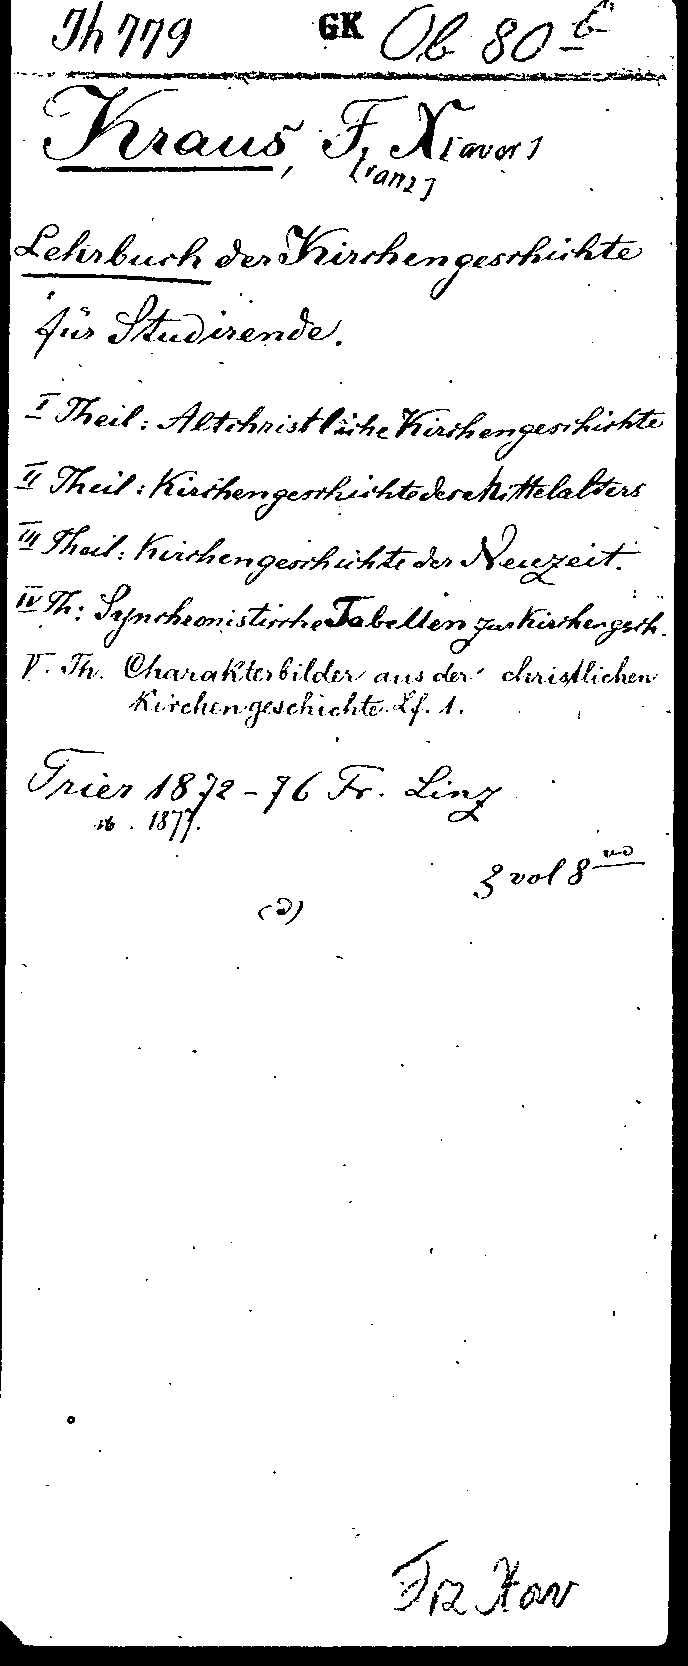 Th 779 GK Ob 80 b
Kraus, F[ranz] X[aver]
Lehrbuch der Kirchengeschichte
für Studirende.
I Theil: Altchristliche Kirchengeschichte
II Theil: Kirchengeschichte des Mittelalters
III Theil: Kirchengeschichte der Neuzeit.
IV Th: Synchronistische Tabellen zur Kirchengesch.
V. Th. Charakterbilder aus der christlichen
Kirchengeschichte Lf. 1.
Trier 1872-76 Fr. Linz
ib. 1877.
3 vol 8vo
(2)
Frz Xav